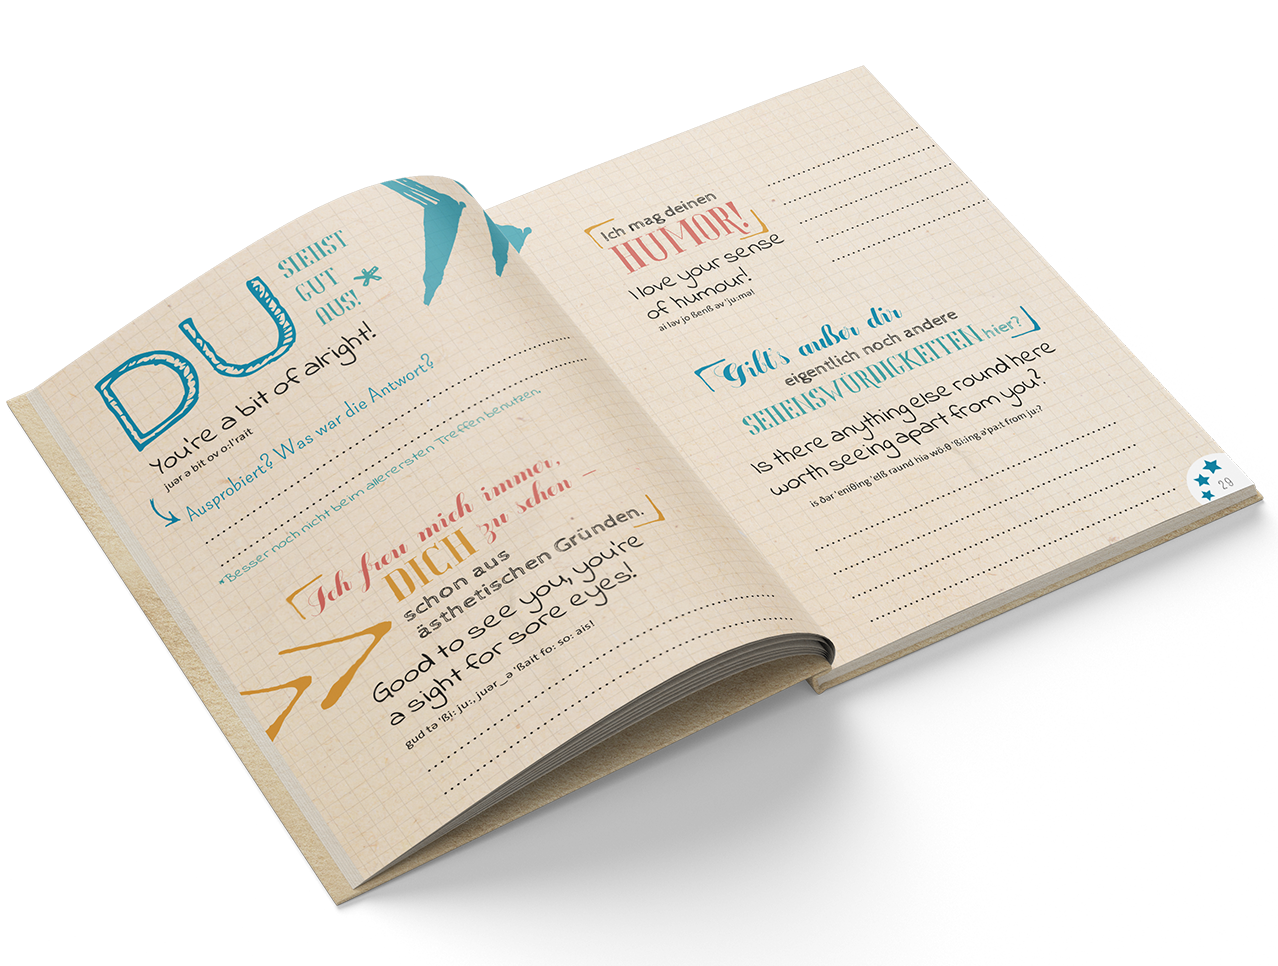 DU SIEHST
GUT
AUS! *
You're a bit of alright!
juər ə bit ov oːl'rait
Ausprobiert? Was war die Antwort?
*Besser noch nicht beim allerersten Treffen benutzen.
Ich freu mich immer,
DICH zu sehen –
schon aus
ästhetischen Gründen.
Good to see you, you're
a sight for sore eyes!
gud tə 'ßiː juː, juər_ə 'ßait foː soː ais!
Ich mag deinen
HUMOR!
I love your sense
of humour!
ai lav jo ßenß av 'juːmə!
Gibt's außer dir
eigentlich noch andere
SEHENSWÜRDIGKEITEN hier?
Is there anything else round here
worth seeing apart from you?
29